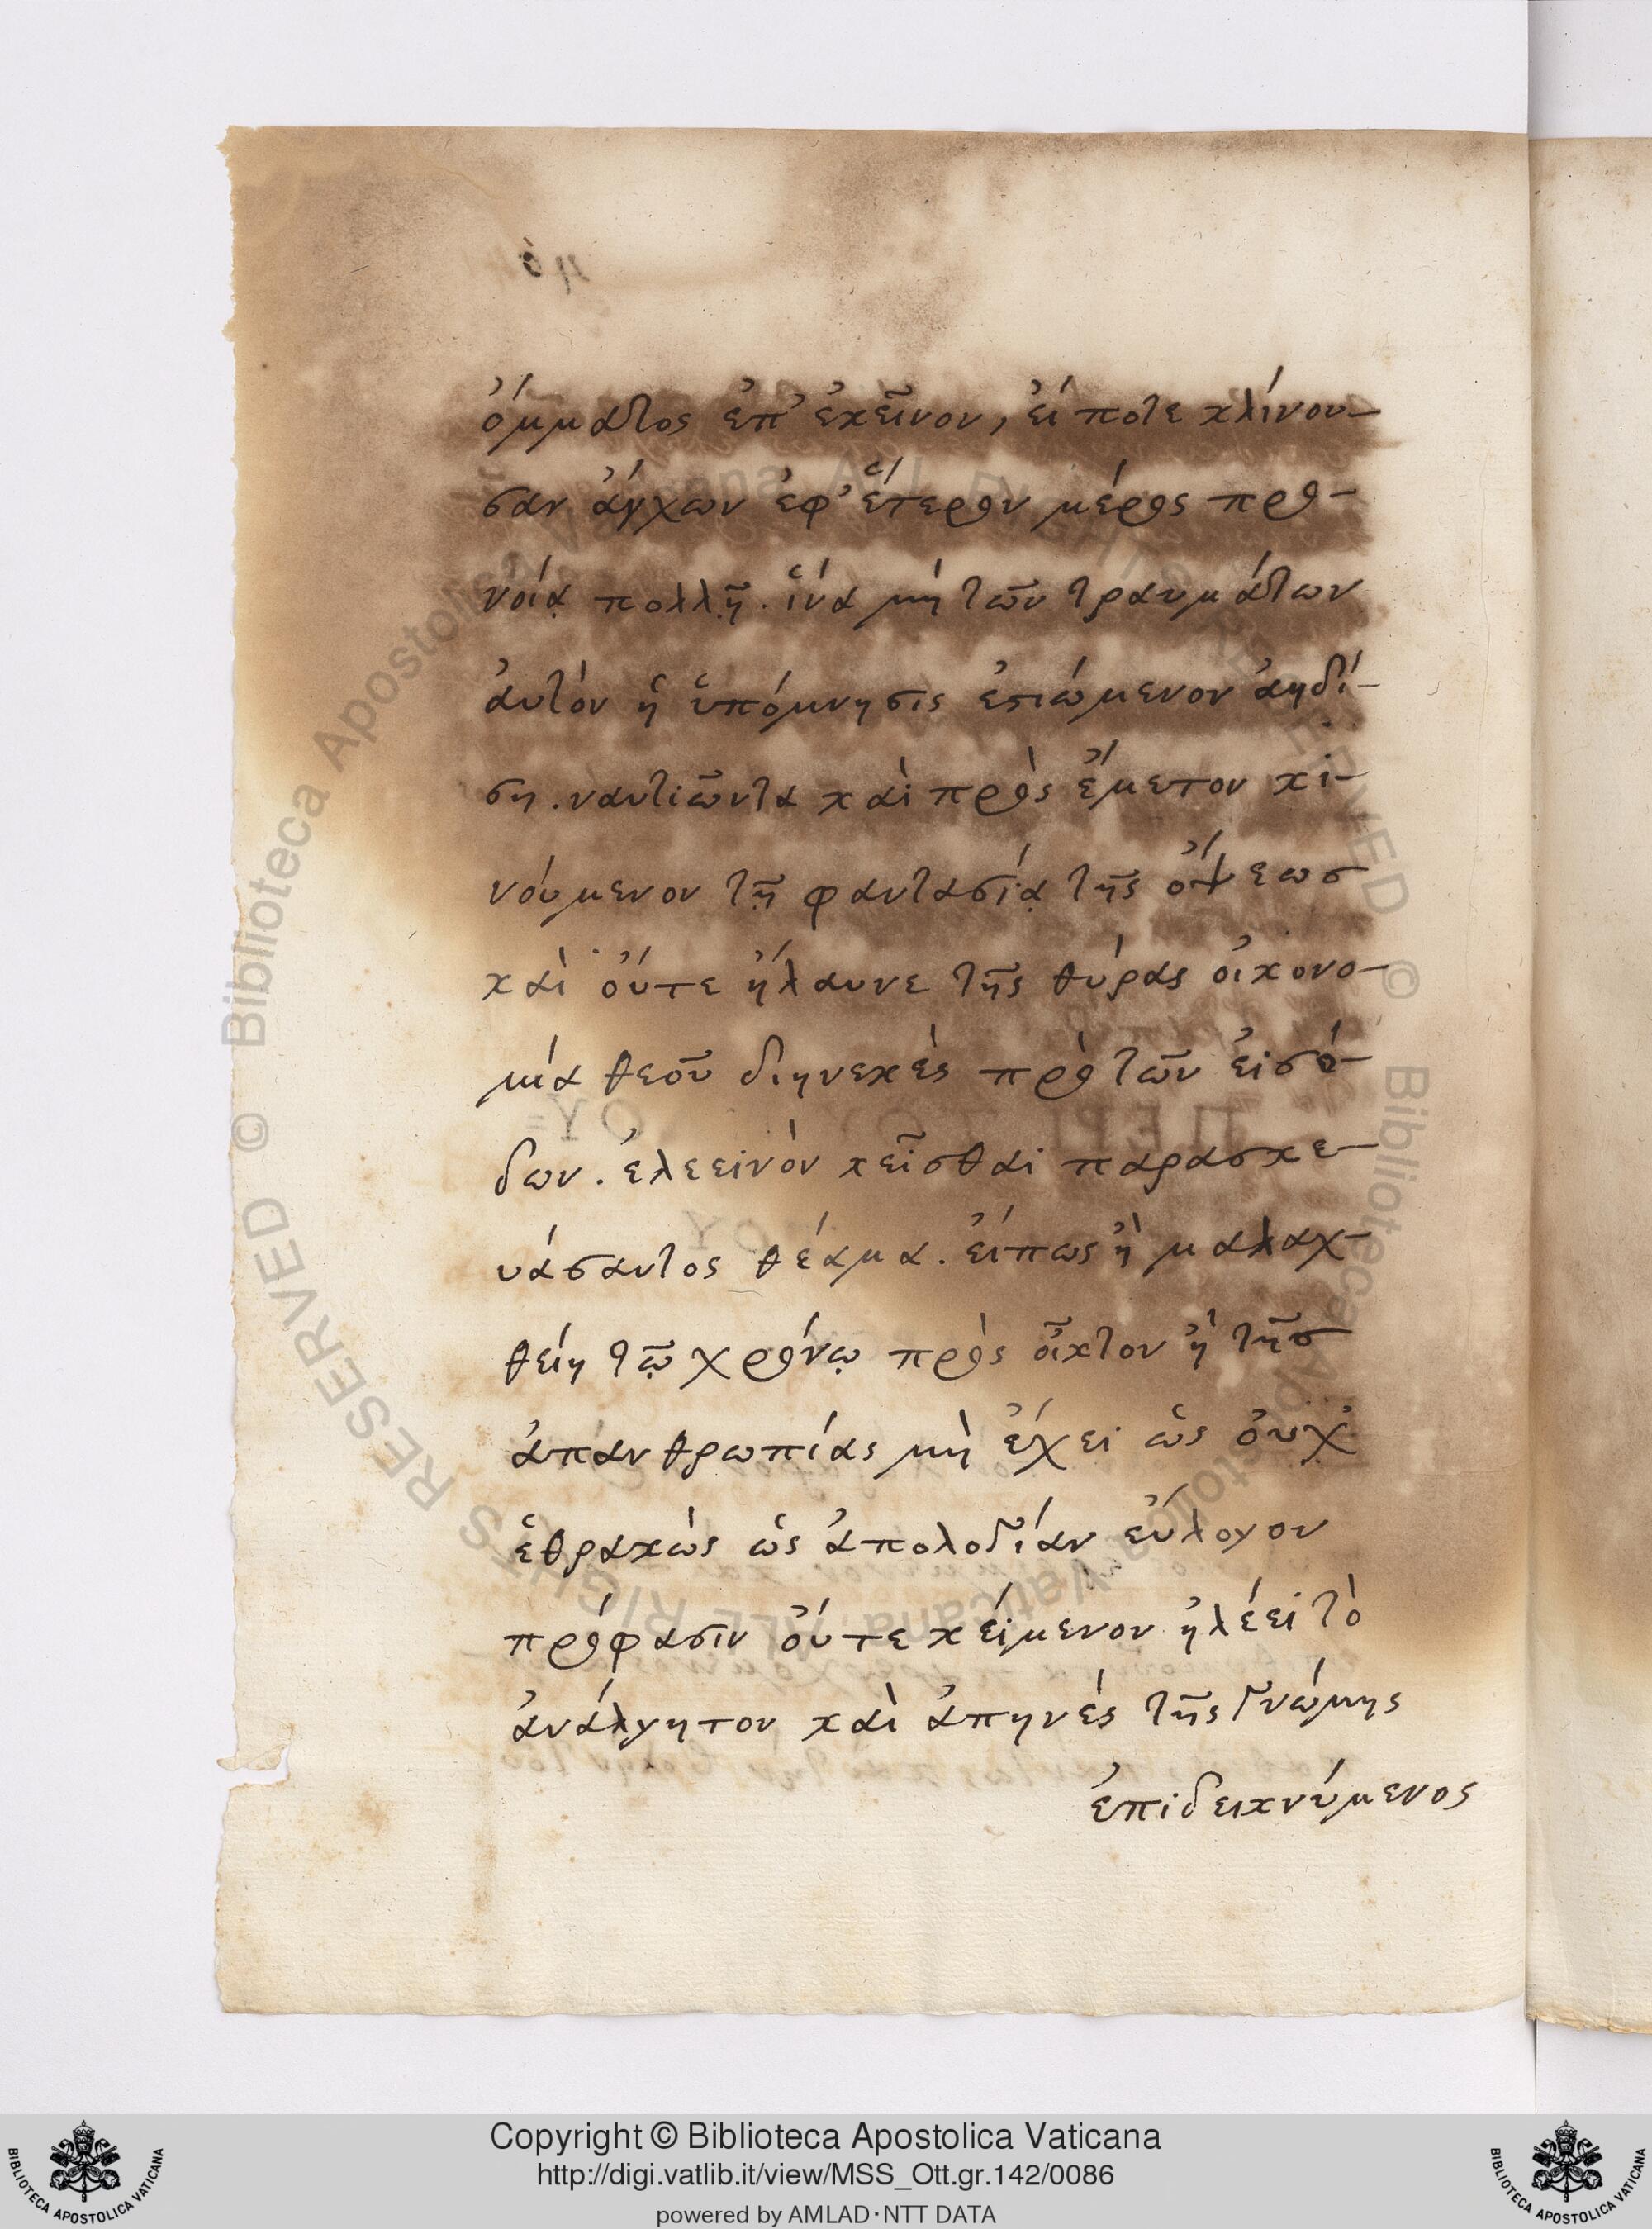 ὄμματος ἐπ' ἐκεῖνον, εἴ ποτε κλίνου-
σαν ἄγχων ἐφ' ἕτερον μέρος προ-
νοίᾳ πολλῇ. ἵνα μὴ τῶν τραυμάτων
αὐτὸν ἡ ὑπόμνησις ἑστιώμενον ἀηδί-
ση. ναυτιῶντα καὶ πρὸς ἔμετον κι-
νούμενον τῇ φαντασίᾳ τῆς ὄψεωσ
καὶ οὔτε ἤλαυνε τῆς θύρας οἰκονο-
μία θεοῦ διηνεκὲς πρὸ τῶν εἰσό-
δων. ἐλεεινὸν κεῖσθαι παρασκε-
υάσαντος θέαμα. εἴπως ἢ μαλαχ-
θείη τῷ χρόνῳ πρὸς οἶκτον ἢ τῆσ
ἀπανθρωπίας μὴ ἔχει ὡς οὐχ
ἑθρακὼς ὡς ἀπολογίαν εὔλογον
πρόφασιν οὔτε κείμενον ἠλέει τὸ
ἀνάλγητον καὶ ἀπηνὲς τῆς γνώμης
ἐπιδεικνύμενος
Copyright © Biblioteca Apostolica Vaticana
http://digi.vatlib.it/view/MSS_Ott.gr.142/0086
powered by AMLAD·NTT DATA
BIBLIOTECA APOSTOLICA VATICANA
BIBLIOTECA APOSTOLICA VATICANA
Biblioteca Apostolica Vaticana ALL RIGHTS RESERVED © Biblioteca Apostolica Vaticana ALL RIGHTS RESERVED ©